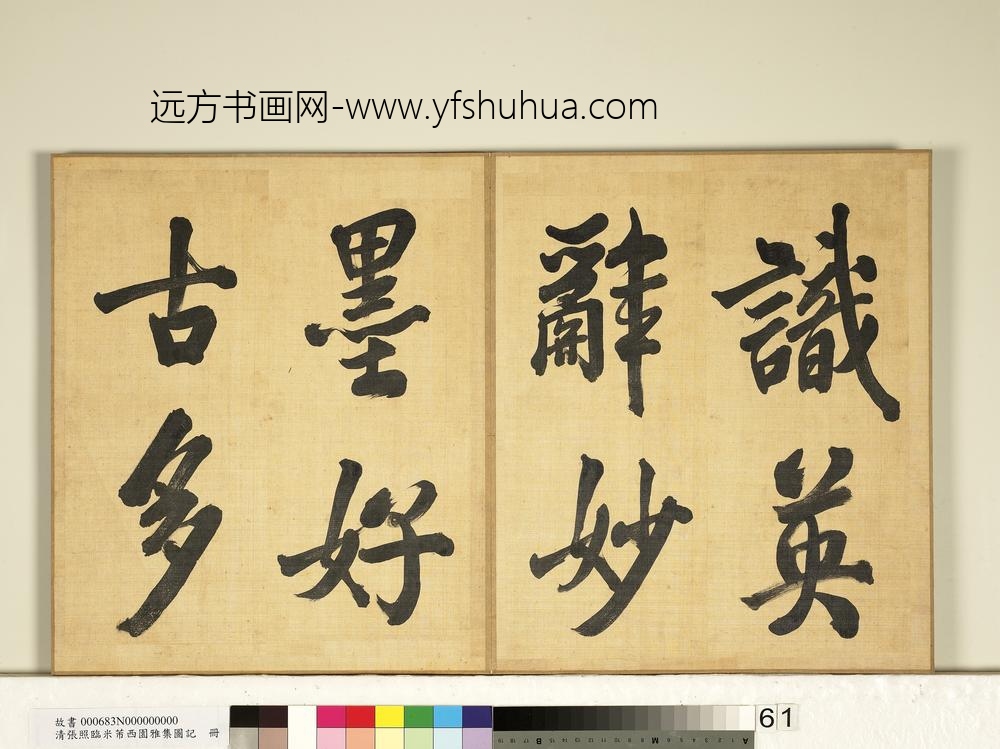 远方书画网-www.yfshuhua.com
識英
辭妙
墨好
古多
故書 000683N000000000
清張照臨米芾西園雅集圖記 冊
61